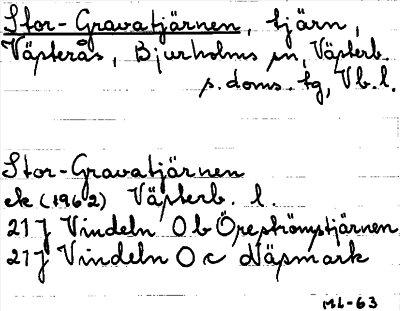 Stor-Gravatjärnen, tjärn,
Västerås, Bjurholms sn, Västerb.
s. doms. tg, Vb. l.
Stor-Gravatjärnen
ek (1962) Västerb. l.
21J Vindeln Ob Öreströmstjärnen
21J Vindeln Oc Näsmark
ML-63